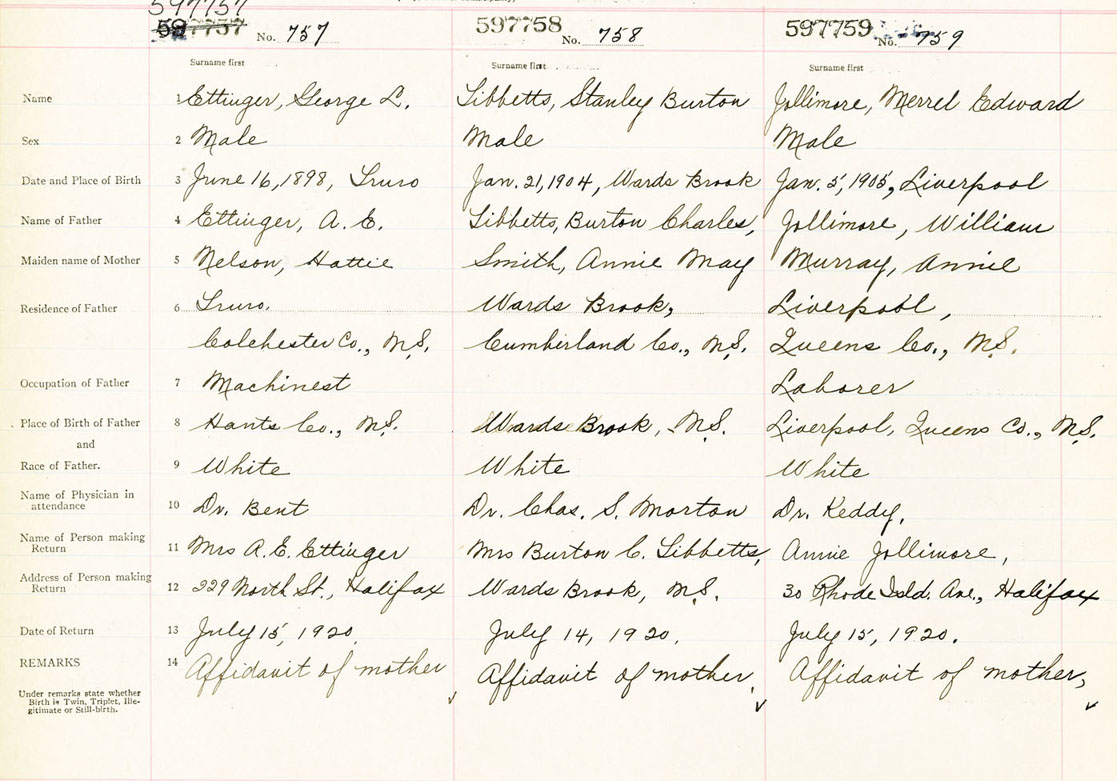 597757
597757 No. 757 597758 No. 758 597759 No. 759
Surname first Surname first Surname first
Name 1 Ettinger, George L. Tibbetts, Stanley Burton Jollimore, Merrel Edward
Sex 2 Male Male Male
Date and Place of Birth 3 June 16, 1898, Truro Jan. 21, 1904, Wards Brook Jan. 5, 1905, Liverpool
Name of Father 4 Ettinger, A. E. Tibbetts, Burton Charles, Jollimore, William
Maiden name of Mother 5 Nelson, Hattie Smith, Annie May Murray, Annie
Residence of Father 6 Truro, Wards Brook, Liverpool,
Colchester Co., N.S. Cumberland Co., N.S. Queens Co., N.S.
Occupation of Father 7 Machinest Laborer
Place of Birth of Father 8 Hants Co., N.S. Wards Brook, N.S. Liverpool, Queens Co., N.S.
and
Race of Father. 9 White White White
Name of Physician in
attendance 10 Dr. Bent Dr. Chas. S. Morton Dr. Keddy,
Name of Person making
Return 11 Mrs A. E. Ettinger Mrs Burton C. Tibbetts, Annie Jollimore,
Address of Person making
Return 12 229 North St., Halifax Wards Brook, N.S. 30 Rhode Isld. Ave., Halifax
Date of Return 13 July 15, 1920, July 14, 1920, July 15, 1920.
REMARKS 14 Affidavit of mother Affidavit of mother, Affidavit of mother,
Under remarks state whether
Birth is Twin, Triplet, Ille-
gitimate or Still-birth.